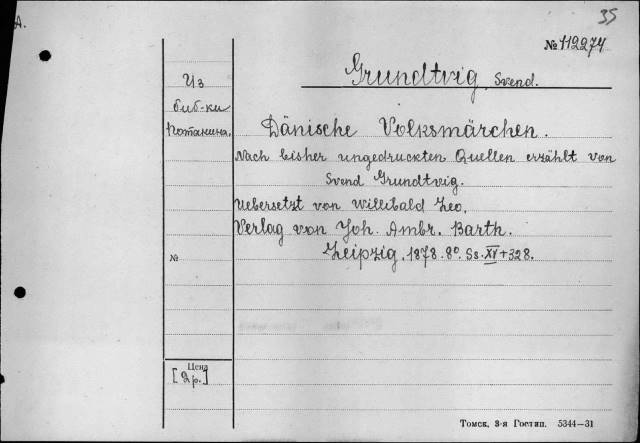 A.
35
№ 112274
Из
биб-ки
Потанина.
Grundtvig, Svend.
Dänische Volksmärchen.
Nach bisher ungedruckten Quellen erzählt von
Svend Grundtvig.
Uebersetzt von Willibald Leo.
Verlag von Joh. Ambr. Barth.
Leipzig. 1878. 8º. Ss. XV+328.
№
Цена
[2р.]
Томск, 3-я Гостип. 5344—31